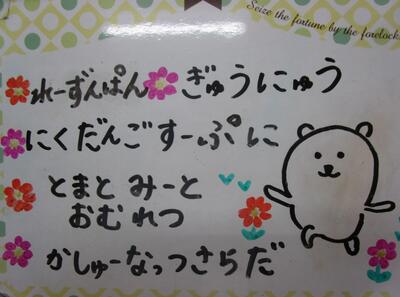 Seize the fortune by the forelock.
れーずんぱん ぎゅうにゅう
にくだんごすーぷに
とまと みーと
おむれつ
かしゅーなっつさらだ